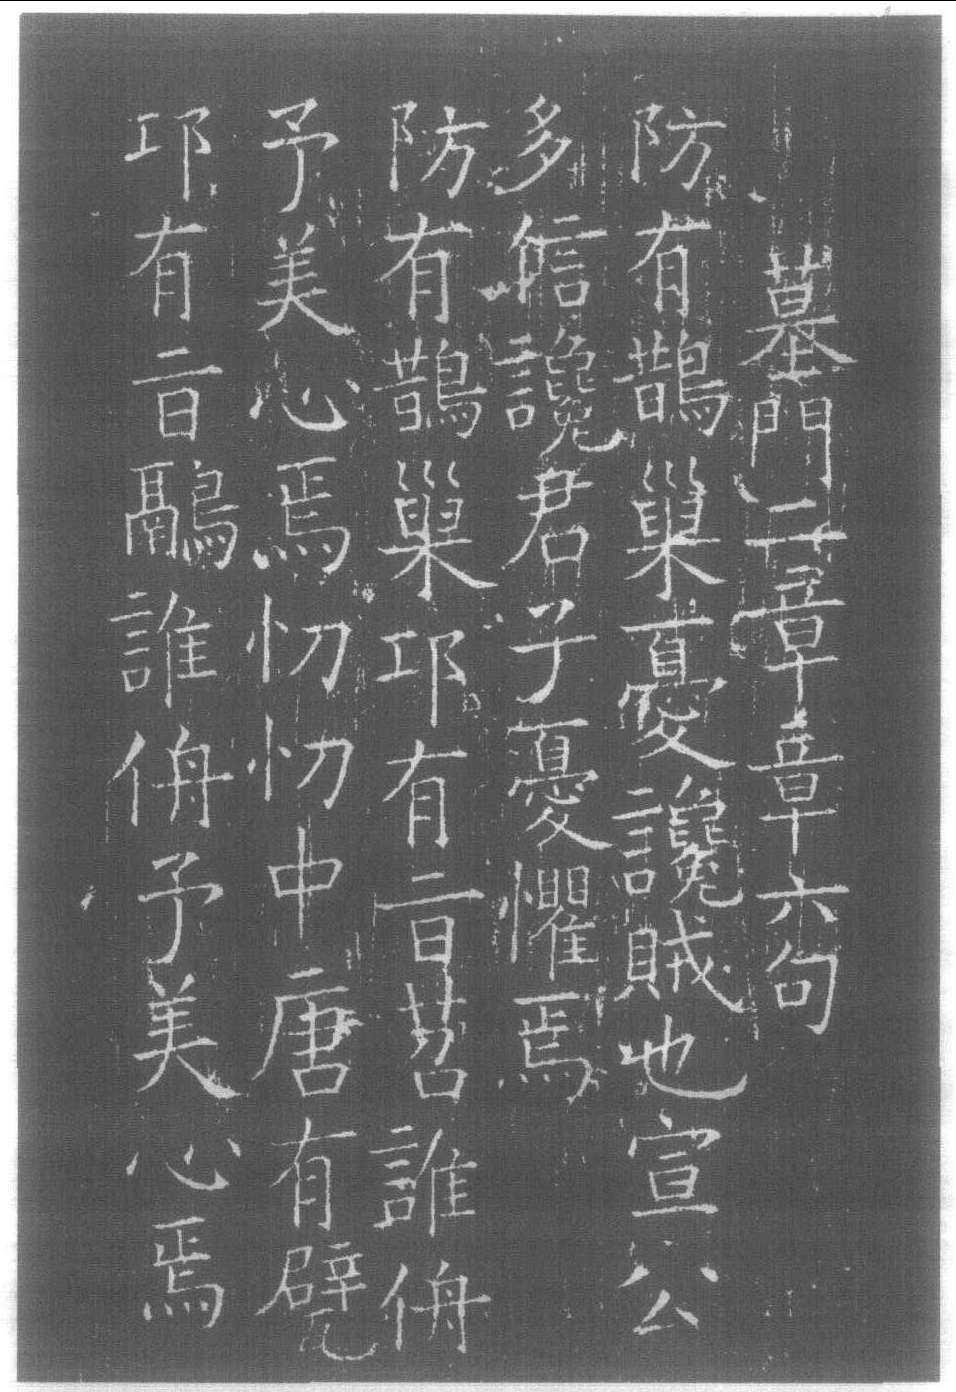 墓門二章章六句
防有鵲巢憂讒賊也宣公
多信讒君子憂懼焉
防有鵲巢邛有旨苕誰侜
予美心焉忉忉中唐有甓
邛有旨鷊誰侜予美心焉